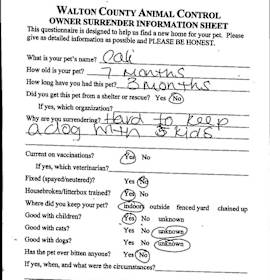 WALTON COUNTY ANIMAL CONTROL
OWNER SURRENDER INFORMATION SHEET
This questionnaire is designed to help us find a new home for your pet. Please
give as detailed information as possible and PLEASE BE HONEST.
What is your pet's name? Cali
How old is your pet? 7 months
How long have you had this pet? 3 months
Did you get this pet from a shelter or rescue? Yes No
If yes, which organization?
Why are you surrendering? Hard to keep
a dog with 3 kids
Current on vaccinations? Yes No
If yes, which veterinarian?
Fixed (spayed/neutered)? Yes No
Housebroken/litterbox trained? Yes No
Where did you keep your pet? indoors outside fenced yard chained up
Good with children? Yes No unknown
Good with cats? Yes No unknown
Good with dogs? Yes No unknown
Has the pet ever bitten anyone? Yes No
If yes, when, and what were the circumstances?